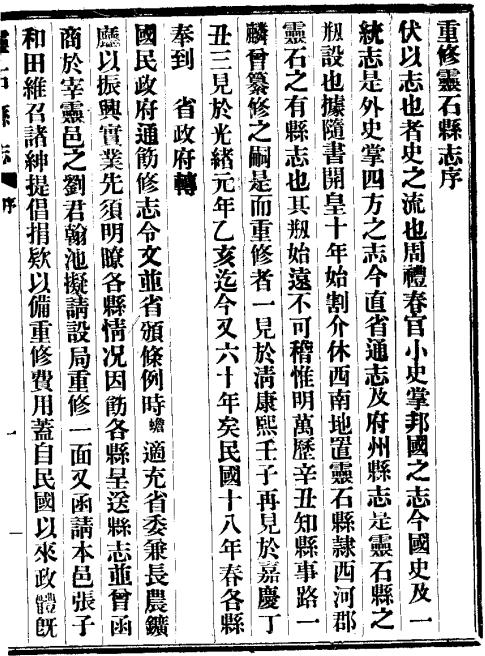 重修靈石縣志序
伏以志也者史之流也周禮春官小史掌邦國之志今國史及一
統志是外史掌四方之志今直省通志及府州縣志是靈石縣之
剏設也據隨書開皇十年始割介休西南地置靈石縣隸西河郡
靈石之有縣志也其剏始遠不可稽惟明萬歷辛丑知縣事路一
麟曾纂修之嗣是而重修者一見於淸康熙壬子再見於嘉慶丁
丑三見於光緒元年乙亥迄今又六十年矣民國十八年春各縣
奉到 省政府轉
國民政府通飭修志令文並省頒條例時蟾適充省委兼長農鑛
廳以振興實業先須明瞭各縣情况因飭各縣呈送縣志並曾函
商於宰靈邑之劉君翰池擬請設局重修一面又函請本邑張子
和田維召諸紳提倡捐欵以備重修費用蓋自民國以來政體旣
靈石縣志 序
一